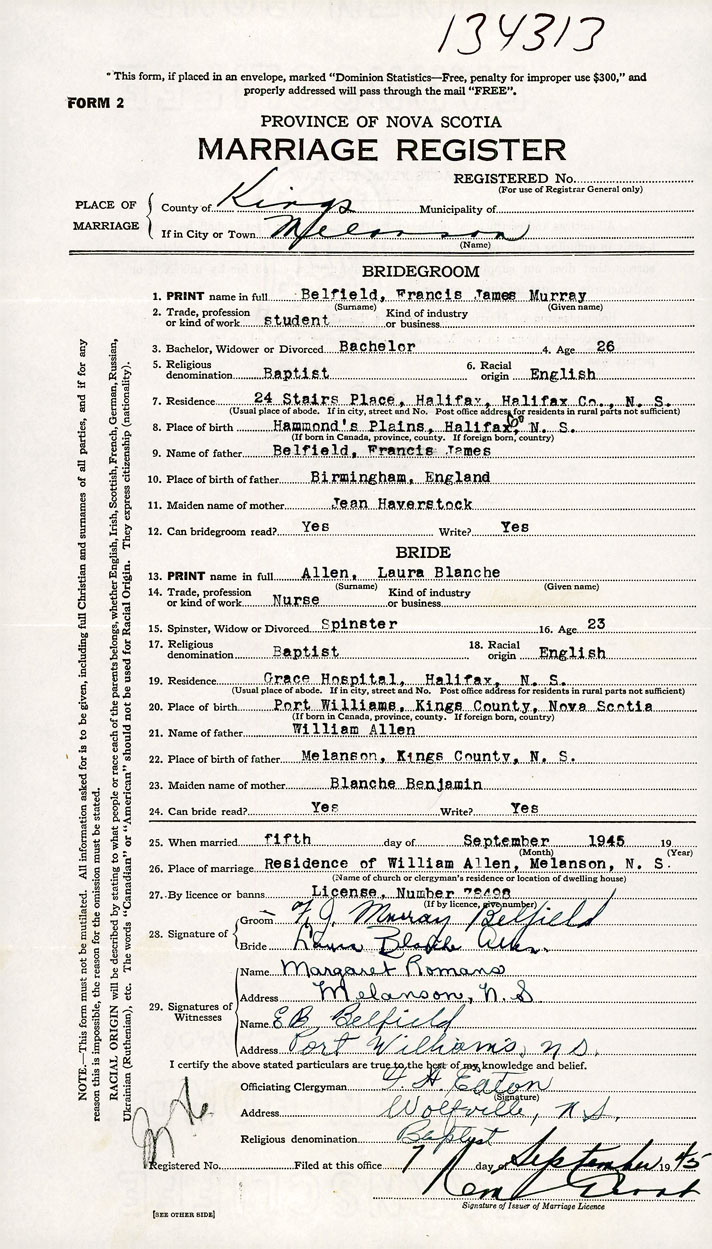 134313
* This form, if placed in an envelope, marked “Dominion Statistics—Free, penalty for improper use $300,” and
properly addressed will pass through the mail “FREE”.
FORM 2
PROVINCE OF NOVA SCOTIA
MARRIAGE REGISTER
REGISTERED No.
(For use of Registrar General only)
PLACE OF MARRIAGE
County of Kings Municipality of
If in City or Town Melanson
(Name)
BRIDEGROOM
1. PRINT name in full Belfield, Francis James Murray
(Surname) (Given name)
2. Trade, profession or kind of work student Kind of industry or business
3. Bachelor, Widower or Divorced Bachelor 4. Age 26
5. Religious denomination Baptist 6. Racial origin English
7. Residence 24 Stairs Place, Halifax, Halifax Co., N. S.
(Usual place of abode. If in city, street and No. Post office address for residents in rural parts not sufficient)
8. Place of birth Hammond's Plains, Halifax, Co N. S.
(If born in Canada, province, county. If foreign born, country)
9. Name of father Belfield, Francis James
10. Place of birth of father Birmingham, England
11. Maiden name of mother Jean Haverstock
12. Can bridegroom read? Yes Write? Yes
BRIDE
13. PRINT name in full Allen, Laura Blanche
(Surname) (Given name)
14. Trade, profession or kind of work Nurse Kind of industry or business
15. Spinster, Widow or Divorced Spinster 16. Age 23
17. Religious denomination Baptist 18. Racial origin English
19. Residence Grace Hospital, Halifax, N. S.
(Usual place of abode. If in city, street and No. Post office address for residents in rural parts not sufficient)
20. Place of birth Port Williams, Kings County, Nova Scotia
(If born in Canada, province, county. If foreign born, country)
21. Name of father William Allen
22. Place of birth of father Melanson, Kings County, N. S.
23. Maiden name of mother Blanche Benjamin
24. Can bride read? Yes Write? Yes
25. When married fifth day of September 1945 19
(Month) (Year)
26. Place of marriage Residence of William Allen, Melanson, N. S.
(Name of church or clergyman's residence or location of dwelling house)
27. By licence or banns License, Number
(If by licence, give number)
28. Signature of
Groom F. J. Murray Belfield
Bride Laura Blanche Allen.
29. Signatures of Witnesses
Name Margaret Romans
Address Melanson, N. S
Name E B Belfield
Address Port Williams, N.S.
I certify the above stated particulars are true to the best of my knowledge and belief.
Officiating Clergyman Eaton
(Signature)
Address Wolfville, N.S.
Religious denomination Baptist
Registered No. Filed at this office 7 day of September 19 45
Signature of Issuer of Marriage Licence
[SEE OTHER SIDE]
NOTE.—This form must not be mutilated. All information asked for is to be given, including full Christian and surnames of all parties, and if for any
reason this is impossible, the reason for the omission must be stated.
RACIAL ORIGIN will be described by stating to what people or race each of the parents belongs, whether English, Irish, Scottish, French, German, Russian,
Ukrainian (Ruthenian), etc. The words “Canadian” or “American” should not be used for Racial Origin. They express citizenship (nationality).